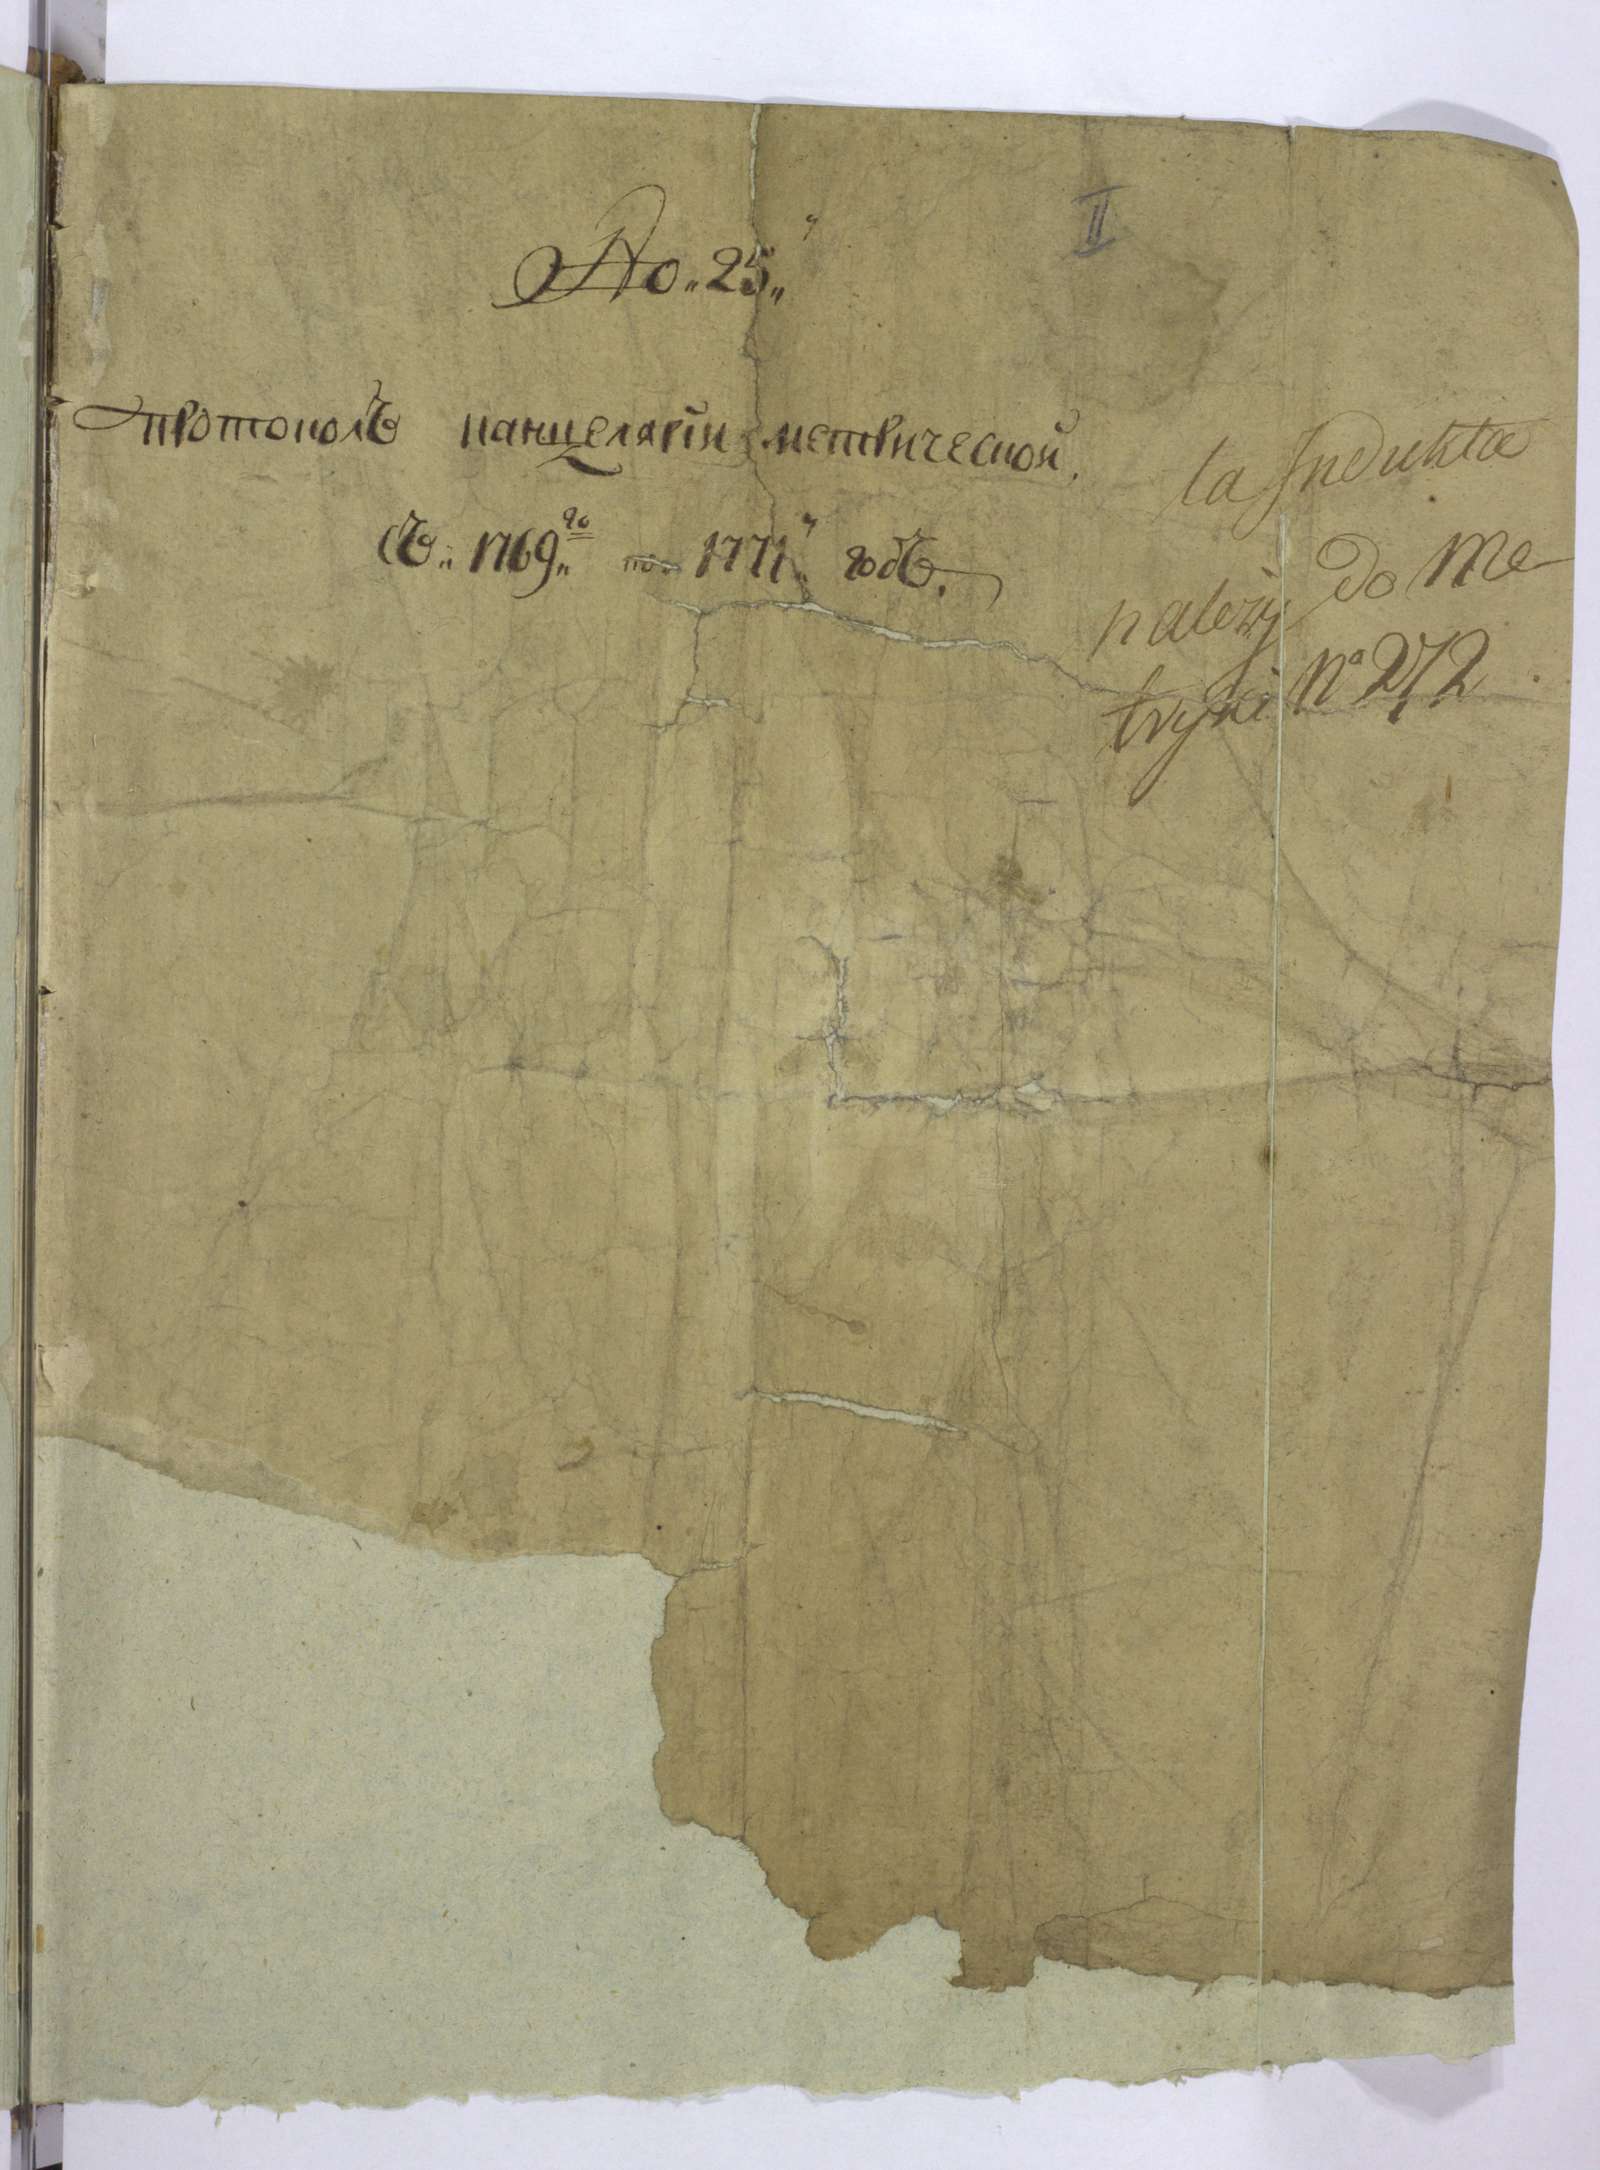 II
No„ 25„
протоколъ канцелярiи метрической.
Съ„ 1769„го по„ 1771„й годъ.
ta Indukta
należy do Me
tryki No 272